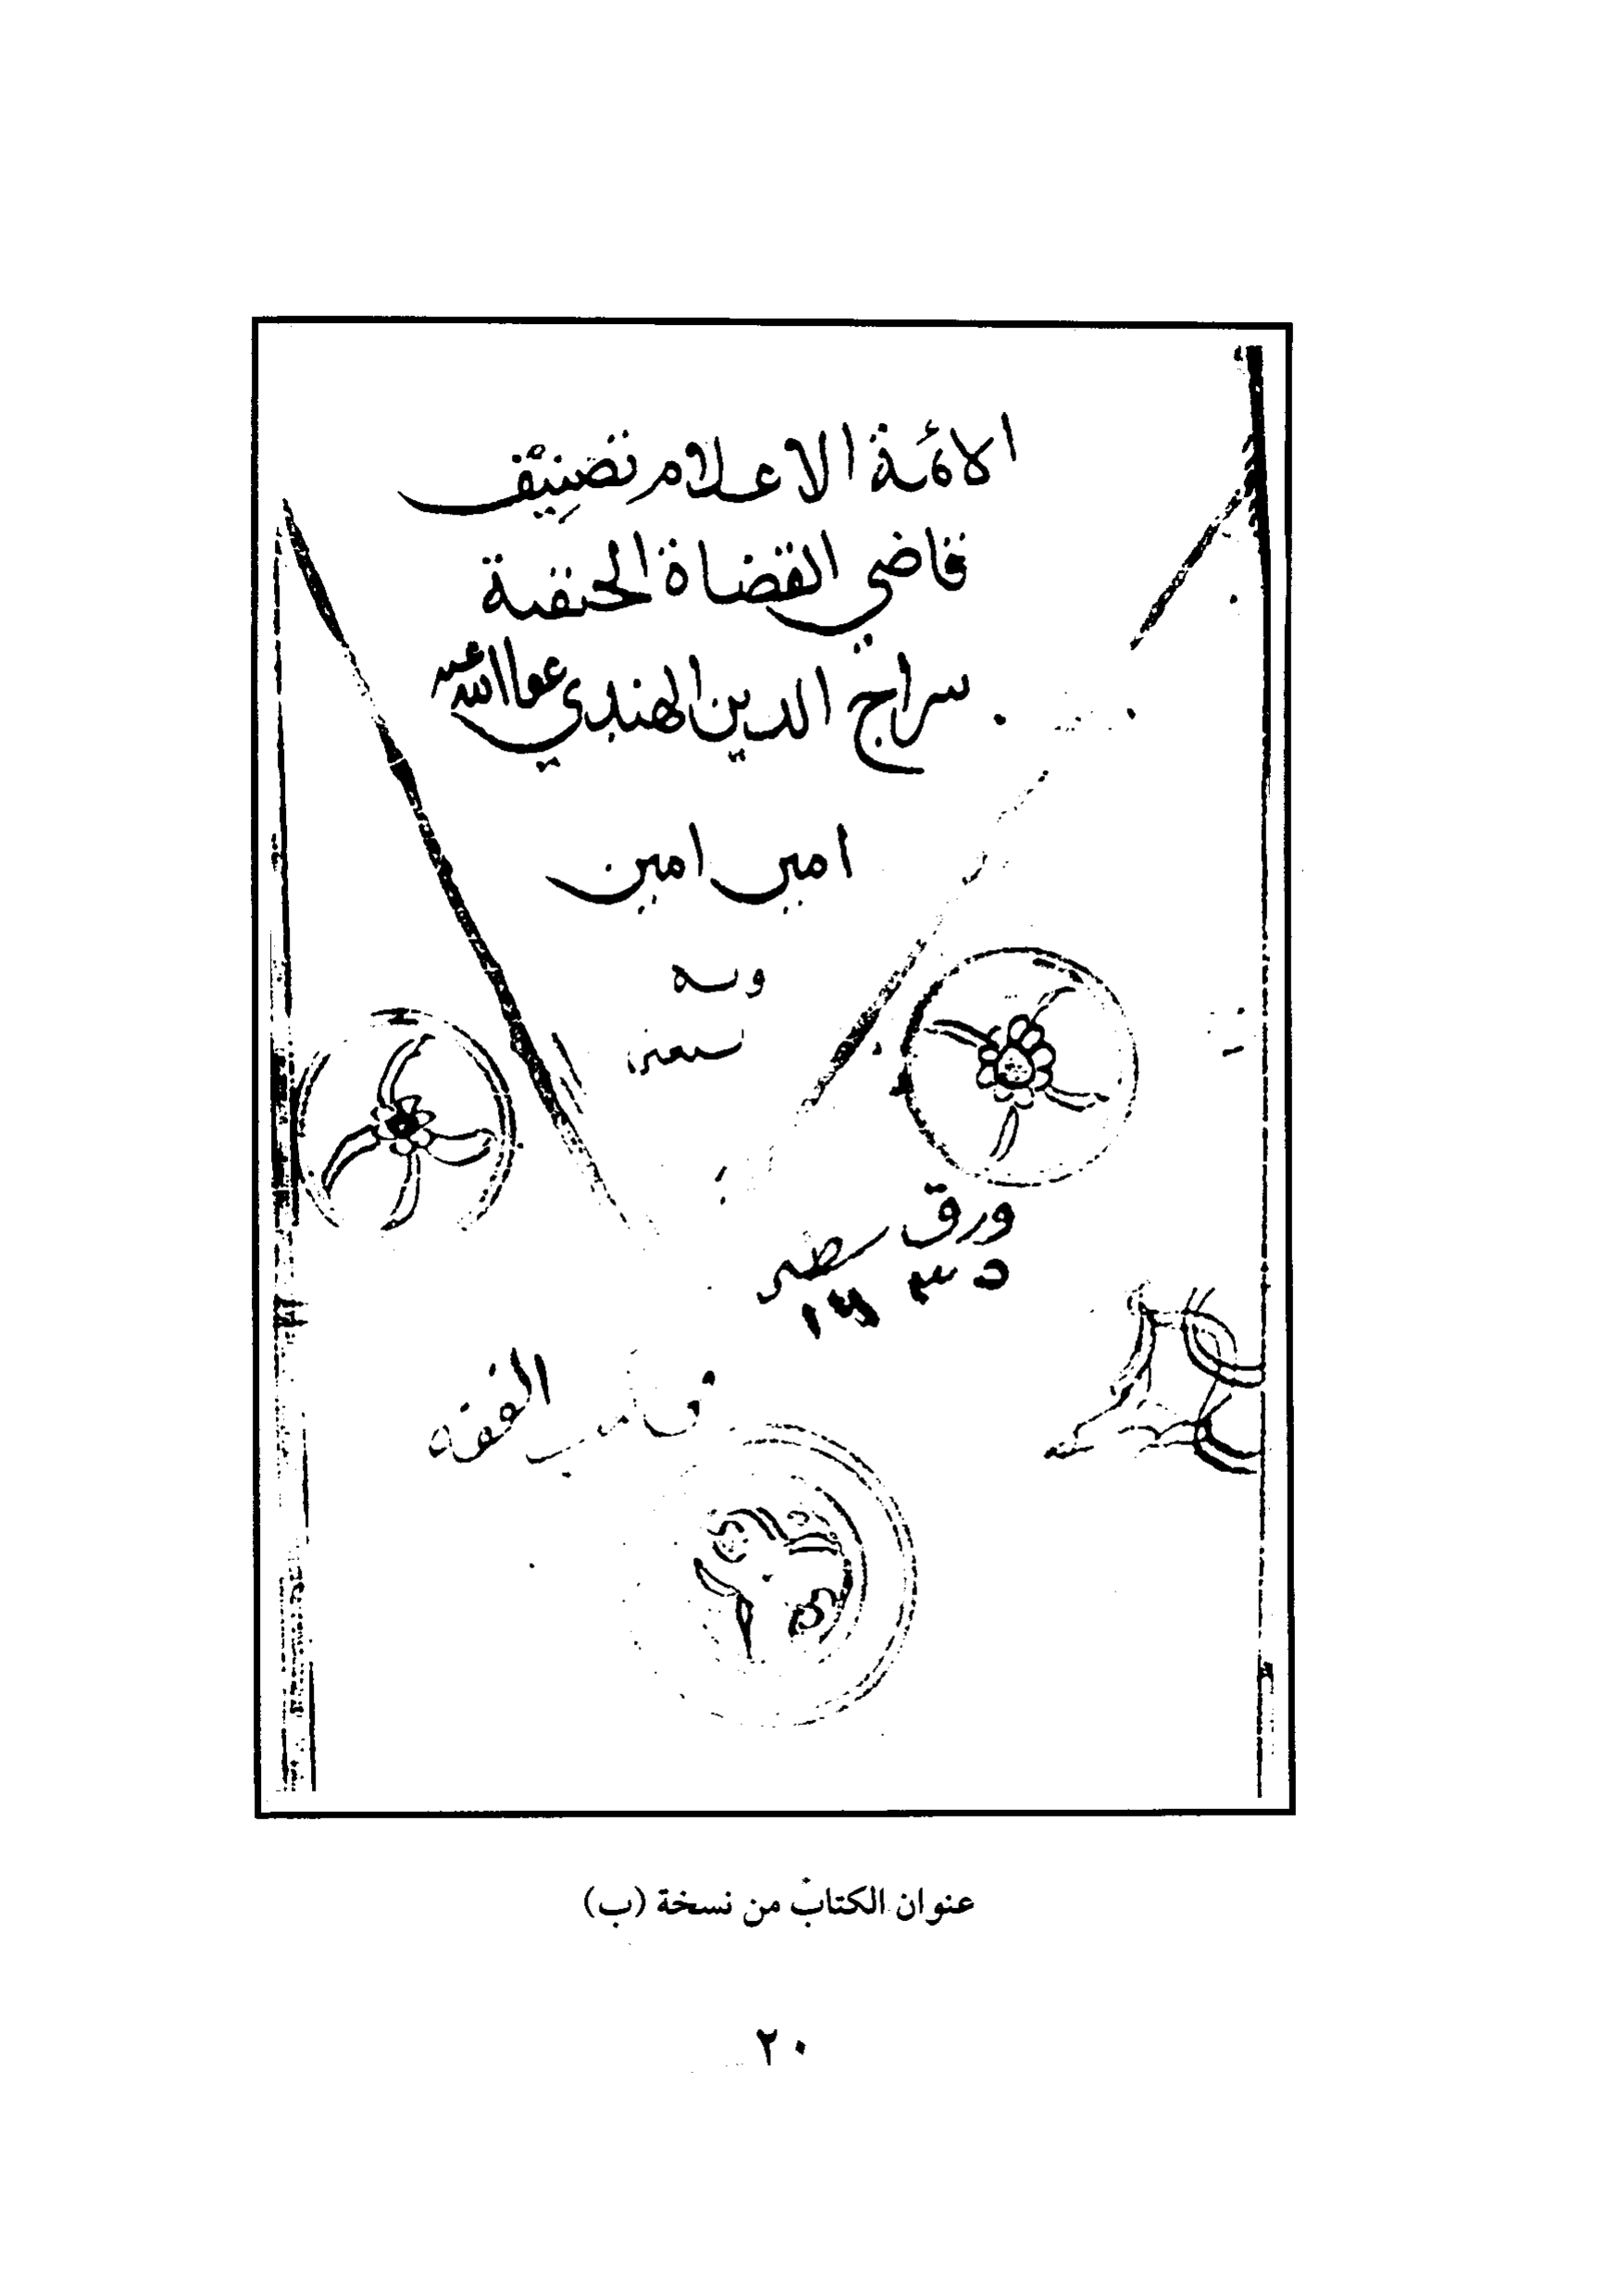 الائمة الاعلام تصنيف
قاضي القضاة الحنفية
سراج الدين الهندي عفا الله عنه
امين امين
وبه
ورق سطر
الفقه
عنوان الكتاب من نسخة (ب)
٢٠